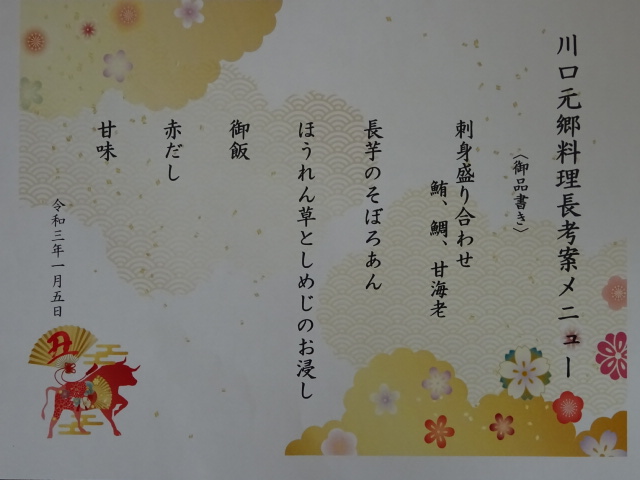 川口元郷料理長考案メニュー
〈御品書き〉
刺身盛り合わせ
鮪、鯛、甘海老
長芋のそぼろあん
ほうれん草としめじのお浸し
御飯
赤だし
甘味
令和三年一月五日
丑